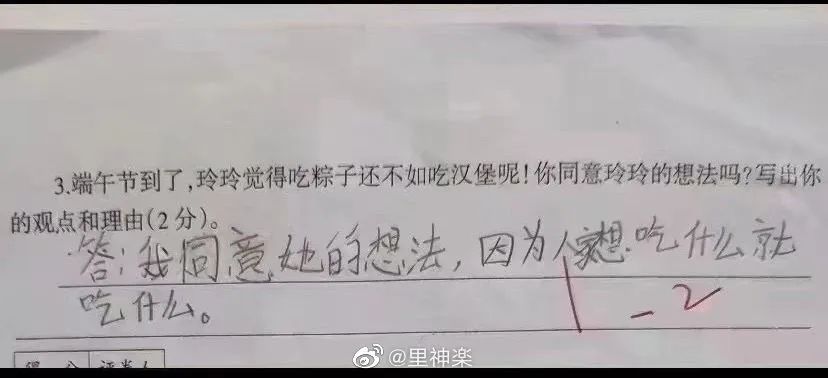 3.端午节到了,玲玲觉得吃粽子还不如吃汉堡呢!你同意玲玲的想法吗?写出你
的观点和理由(2分)。
答:我同意她的想法,因为人家想吃什么就
吃什么。
-2
得 分 评卷人
@里神楽